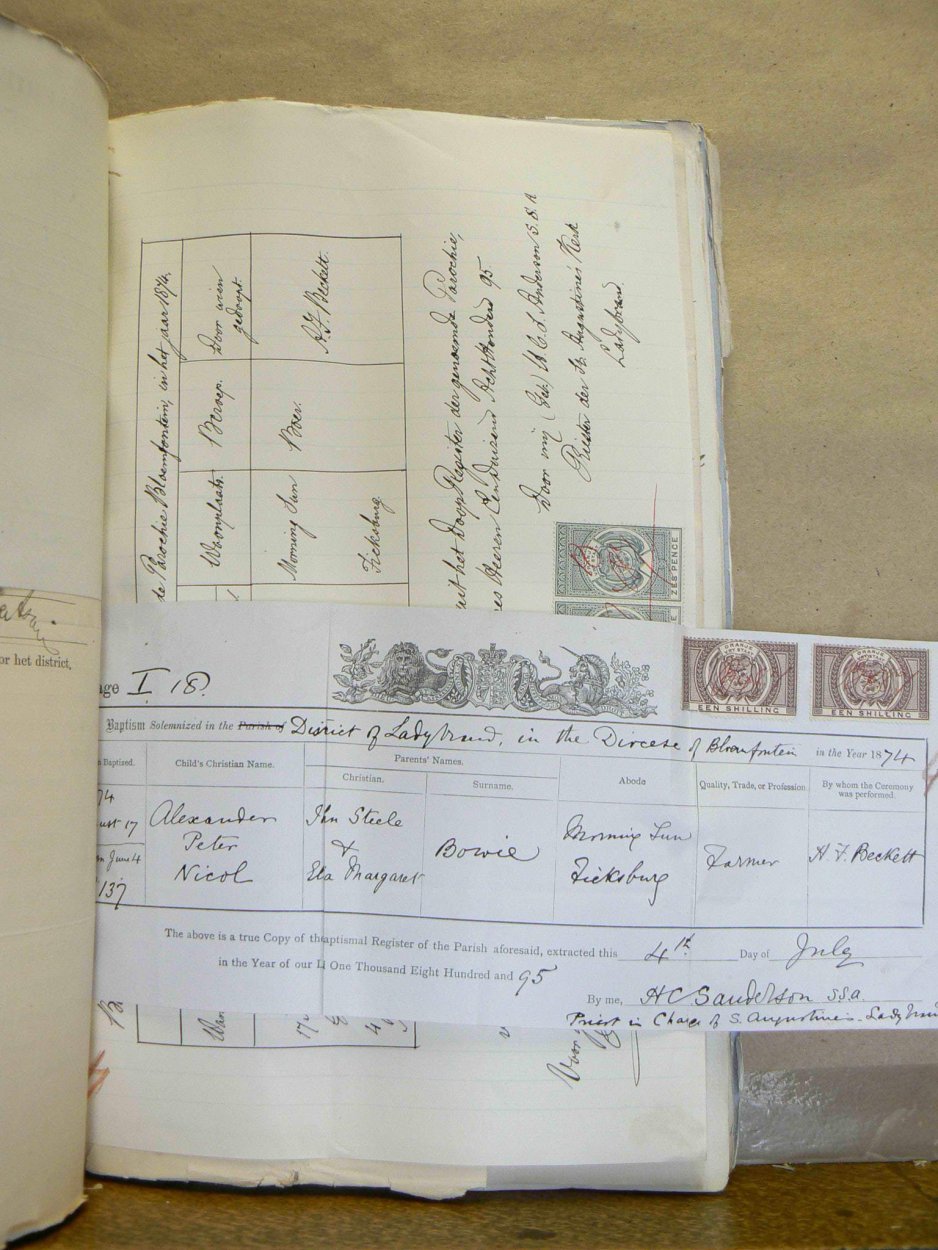 de Parochie Bloemfontein, in het jaar 1874.
Woonplaats.
Beroep.
Door wien
gedoopt.
Morning Sun
Ficksburg.
Boer.
A. F. Beckett.
uit het Doop Register der genoemde Parochie,
Heeren Een Duizend Acht Honderd 95
Door mij (Get) H. C. S. Anderson S. S. A
Priester der St. Augustines Kerk
Ladybrand.
ZES PENCE
or het district,
age I 18.
ORANJE
VRY STAAT
EEN SHILLING
ORANJE
VRY STAAT
EEN SHILLING
Baptism Solemnized in the Parish of District of Ladybrand, in the Diocese of Bloemfontein in the Year 1874
Baptised.
Child's Christian Name.
Parents' Names.
Christian.
Surname.
Abode
Quality, Trade, or Profession
By whom the Ceremony
was performed.
74
ust 17
June 4
137
Alexander
Peter
Nicol
Jhn Steele
&
Ela Margaret
Bowie
Morning Sun
Ficksburg
Farmer
H. F. Beckett
The above is a true Copy of th aptismal Register of the Parish aforesaid, extracted this 4th Day of July
in the Year of our L One Thousand Eight Hundred and 95
By me, HC Sanderson S.S.A.
Priest in Charge of S. Augustines - Ladybrand
17
4
Voor